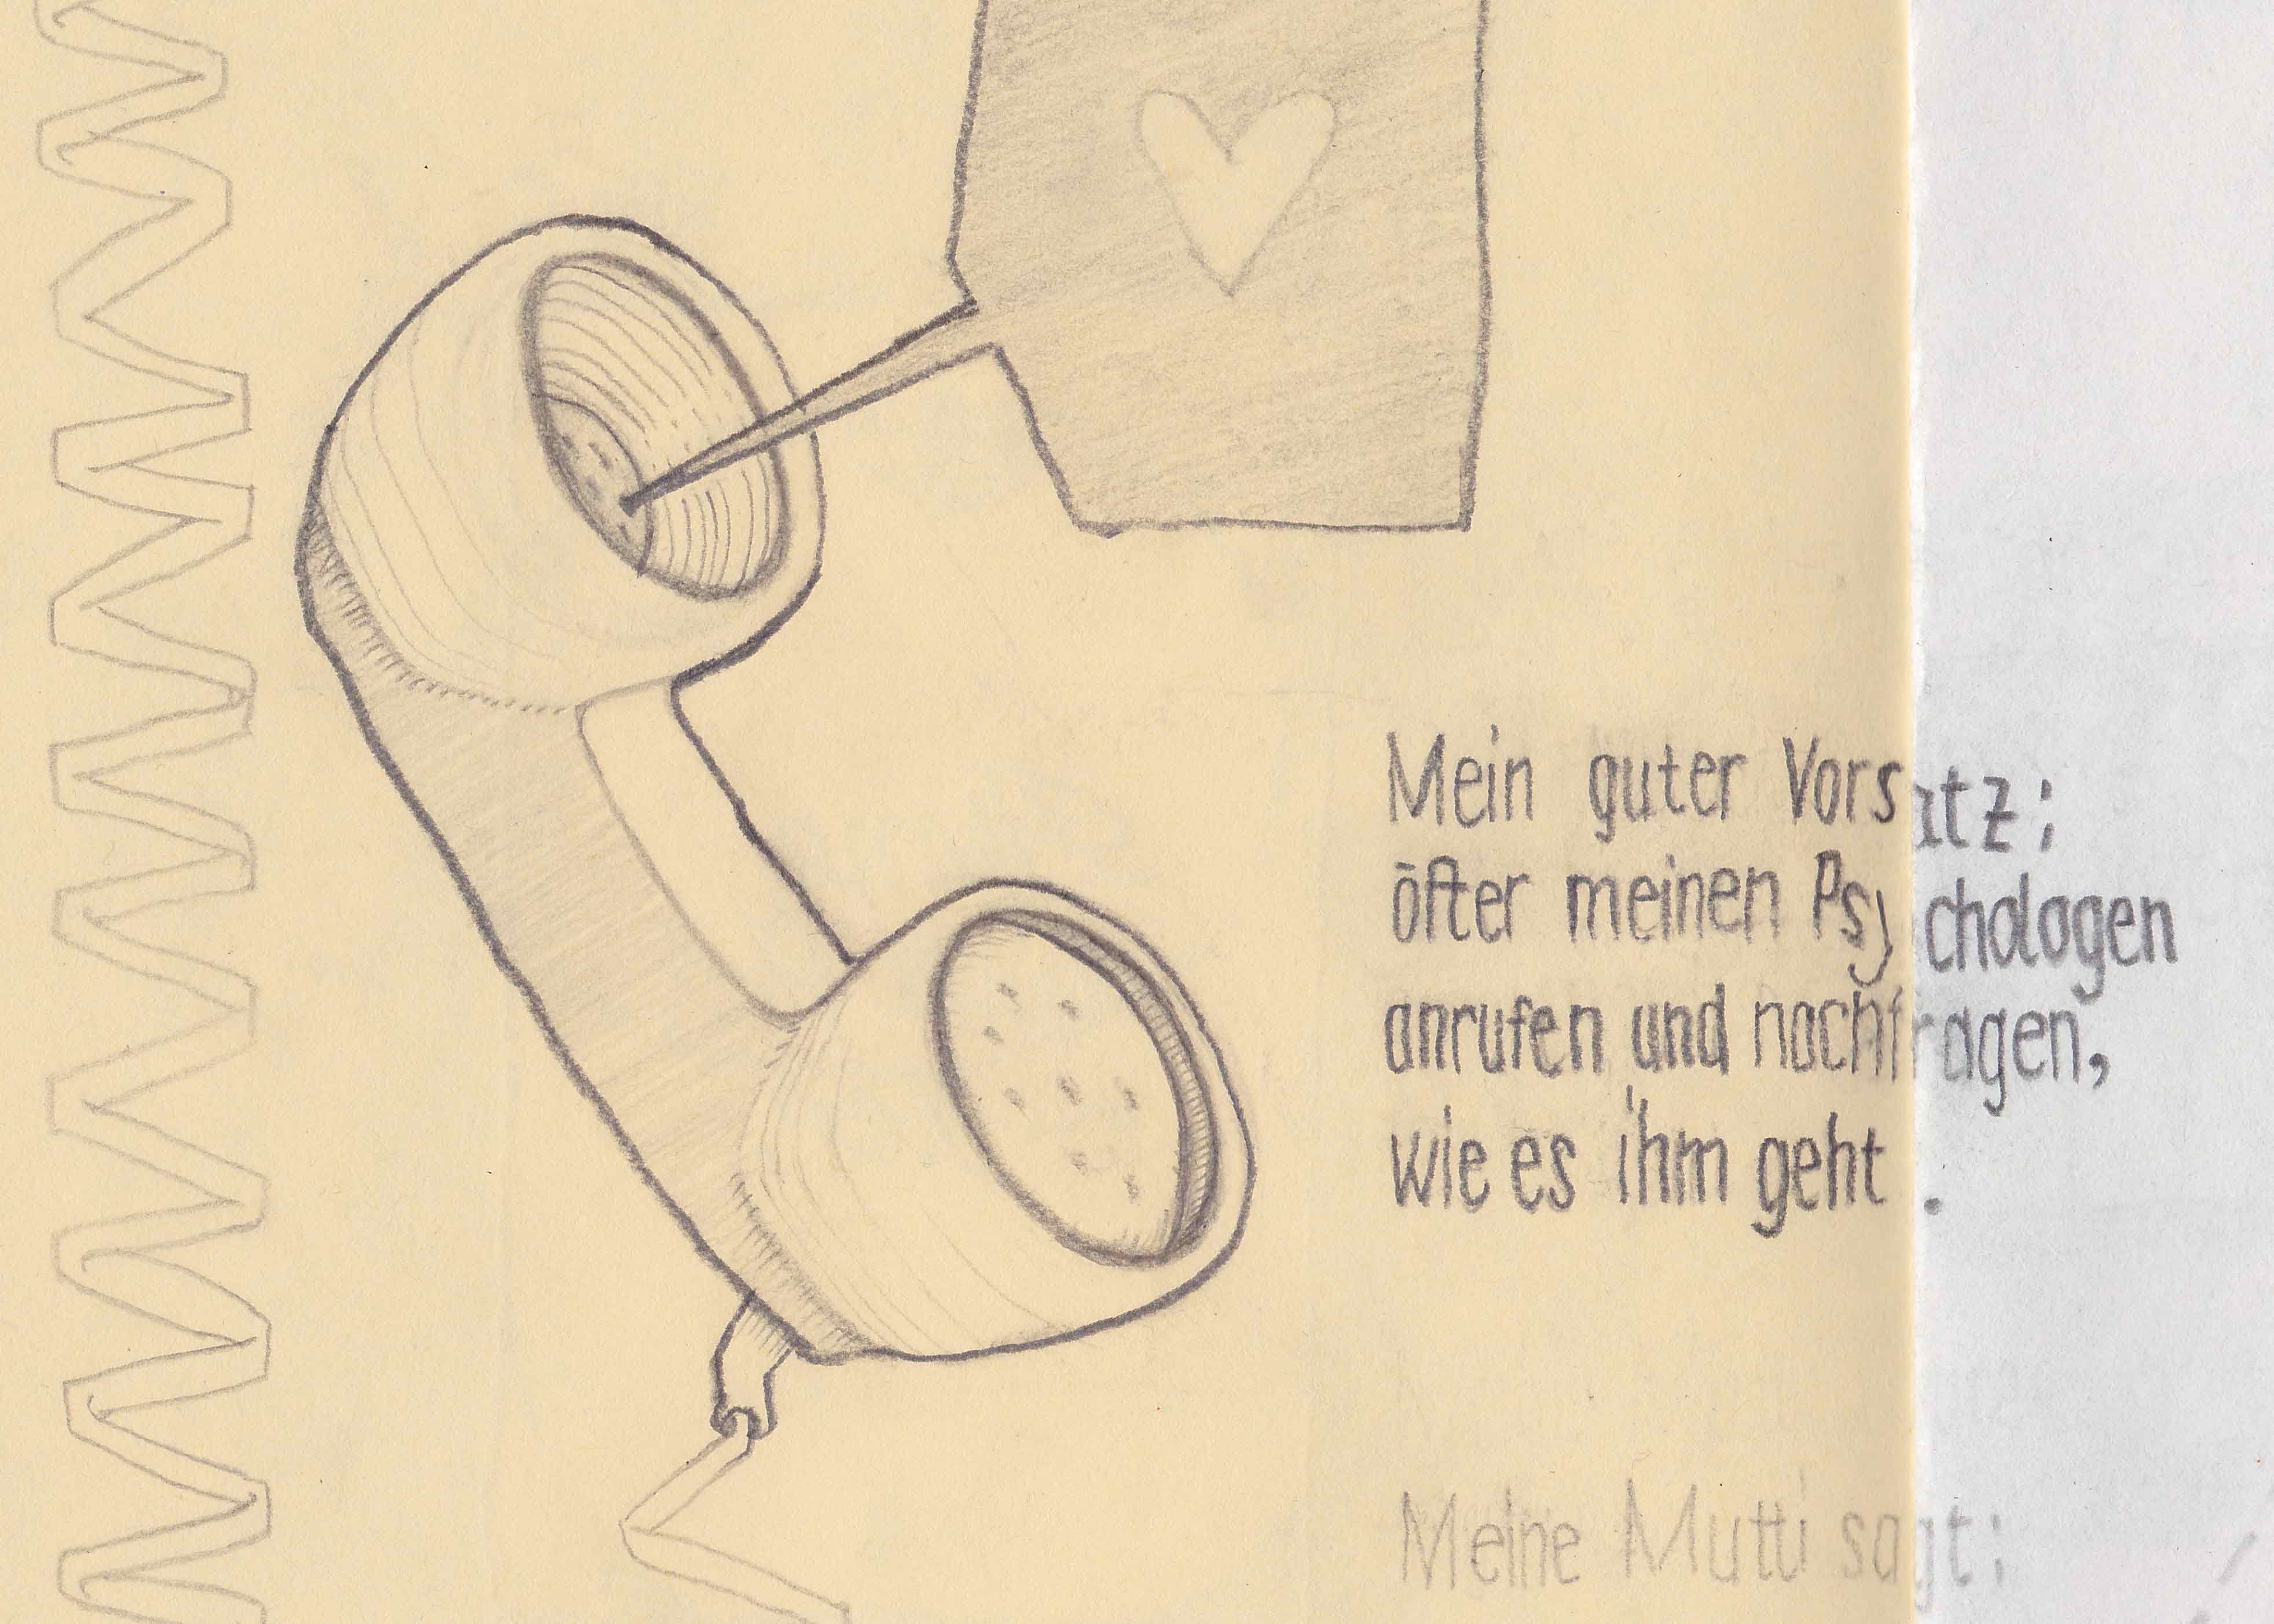 Mein guter Vorsatz:
öfter meinen Psychologen
anrufen und nachfragen,
wie es ihm geht.
Meine Mutti sagt: